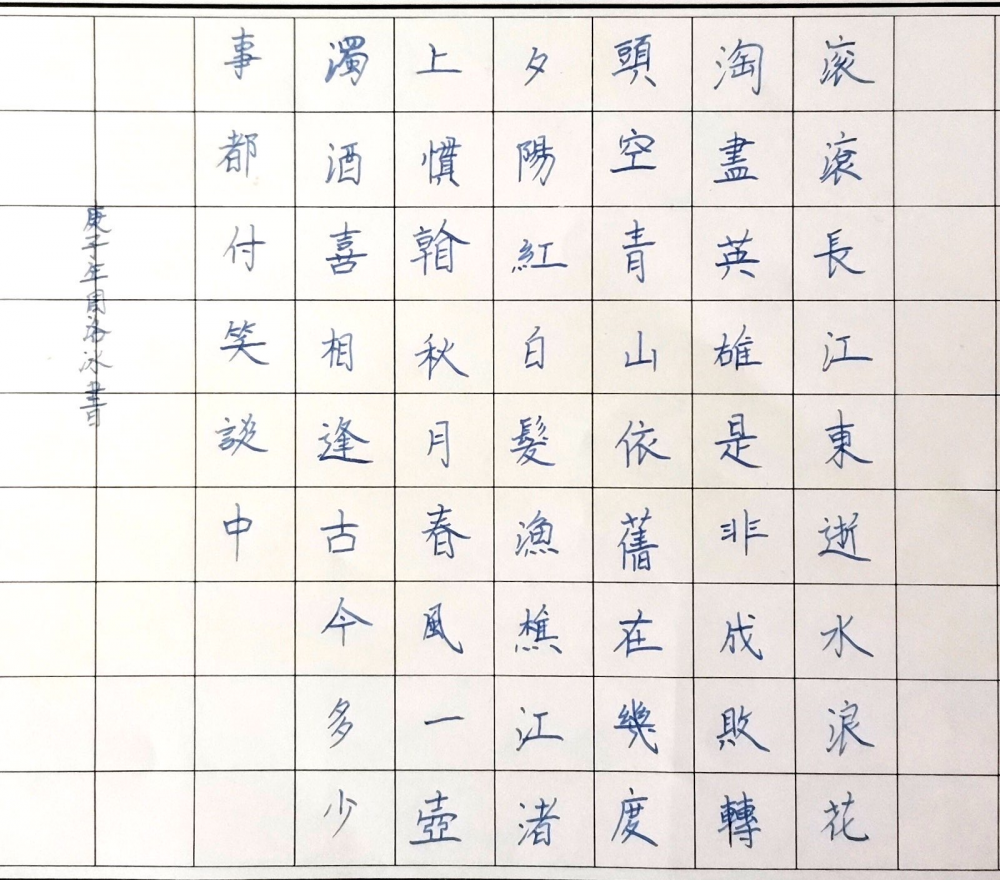 滚滚長江東逝水浪花
淘盡英雄是非成敗轉
頭空青山依舊在幾度
夕陽紅白髮漁樵江渚
上慣翰秋月春風一壺
濁酒喜相逢古今多少
事都付笑談中
庚子年周洛冰書